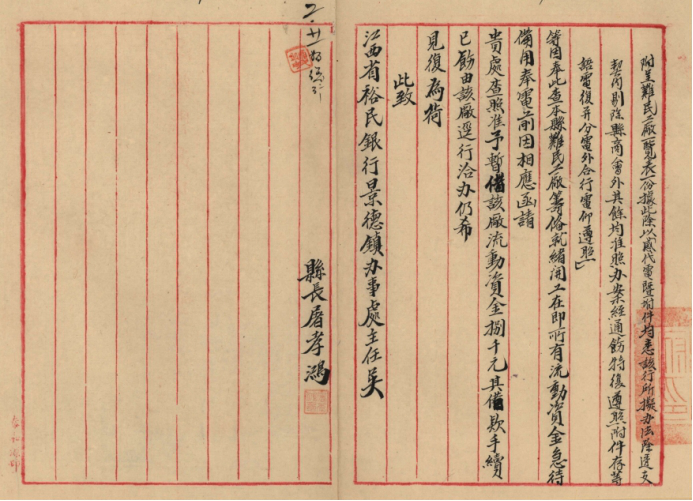 附呈難民工廠一覽表一份據此除以感代電暨附件均悉該行所擬办法除透支
契內剔除縣商會外其餘均准照办案經通飭特復遵照附件存等
語電復并分電外合行電仰遵照」
等因奉此查本縣難民工廠籌俻就緒開工在即所有流動資金急待
備用奉電前因相應函請
貴處查照准予暫借該廠流動資金捌千元其借欵手續
已飭由該廠逕行洽办仍希
見復為荷
此致
江西省裕民銀行景德鎮办事處主任吴
縣長屠孝鴻